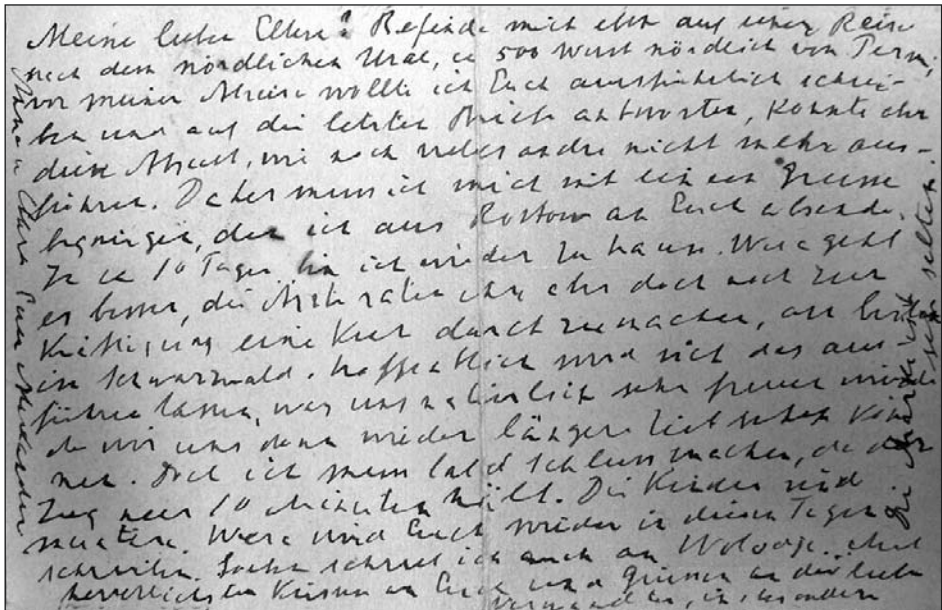 Meine lieben Eltern! Befinde mich eben auf einer Reise
nach dem nördlichen Ural, ca 500 Werst nördlich von Perm,
vor meiner Abreise wollte ich Euch ausführlich schrei-
ben und auf die letzten Briefe antworten, konnte aber
diese Absicht, wie noch vieles andre nicht mehr aus-
führen. Daher muss ich mich mit einem Grusse
begnügen, den ich aus Rostow an Euch absende.
In ca 10 Tagen bin ich wieder zu hause. Wera geht
es besser, die Ärzte raten ihr aber doch noch zur
Kräftigung eine Kur durchzumachen, am besten
im Schwarzwald. Hoffentlich wird sich das aus-
führen lassen, was uns natürlich sehr freuen würde
da wir uns dann wieder länger sehen kön-
nen. Doch ich muss bald Schluss machen, da der
Zug nur 10 Minuten hält. Die Kinder sind
munter. Wera wird Euch wieder in diesen Tagen
schreiben. Soeben schrieb ich auch an Wolodja.
herzlichsten Küssen an Euch und Grüssen an die lieben
Verwandten, insbesondere
Euer Alexander